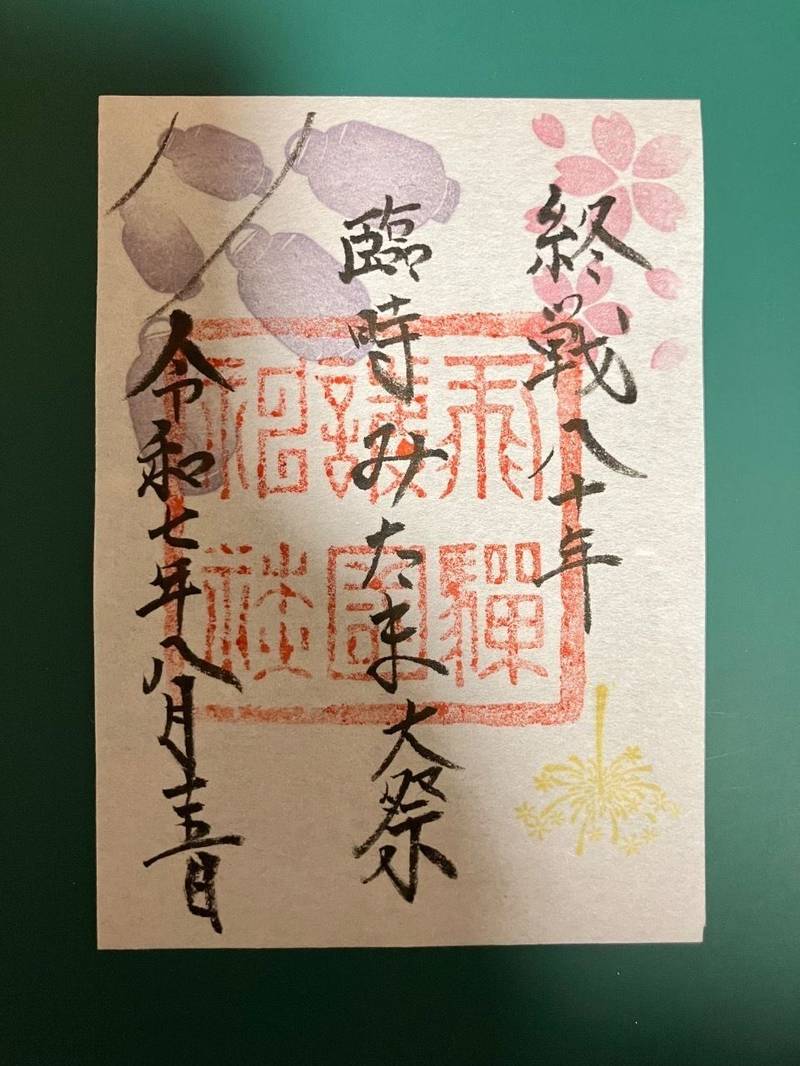 終戦八十年
臨時みたま大祭
令和七年八月十五日
飛驒
護國
神社